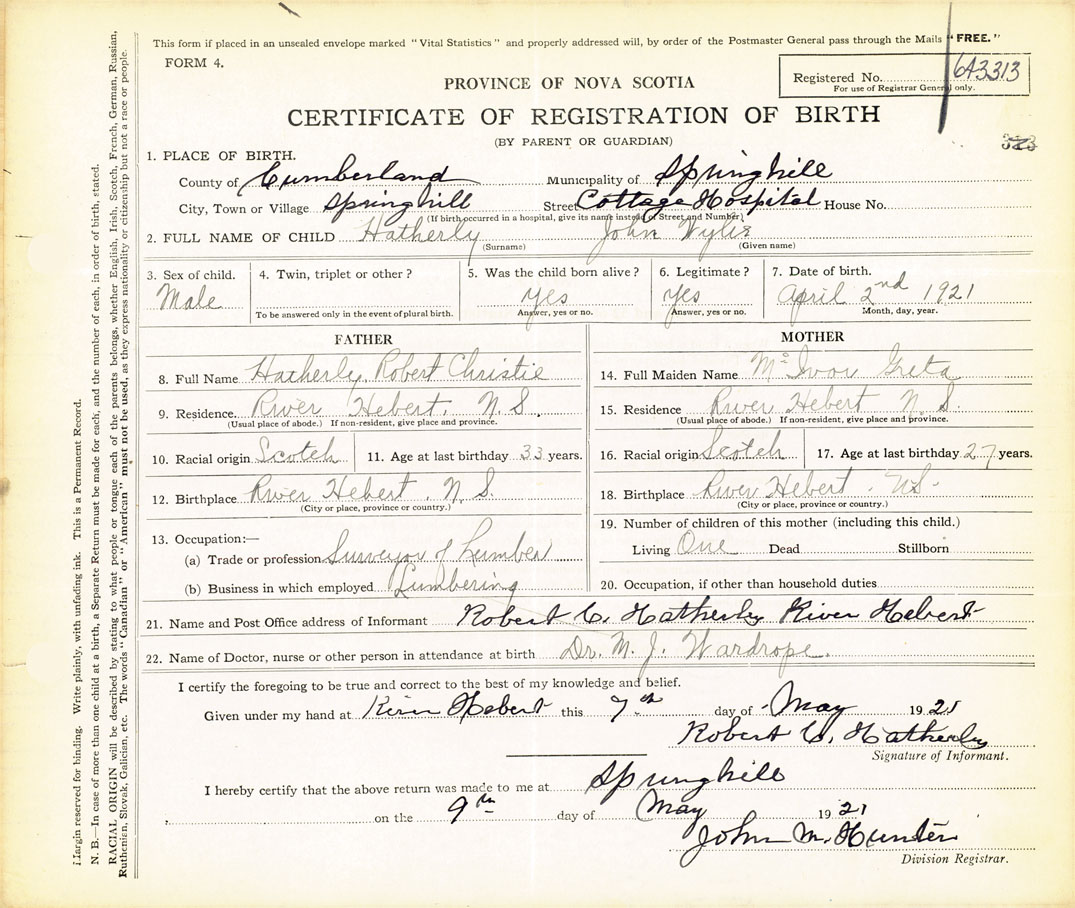 This form if placed in an unsealed envelope marked "Vital Statistics" and properly addressed will, by order of the Postmaster General pass through the Mails "FREE."
FORM 4.
Registered No. 643313
For use of Registrar General only.
PROVINCE OF NOVA SCOTIA
CERTIFICATE OF REGISTRATION OF BIRTH
(BY PARENT OR GUARDIAN)
323
1. PLACE OF BIRTH.
County of Cumberland Municipality of Springhill
City, Town or Village Springhill Street Cottage Hospital House No.
(If birth occurred in a hospital, give its name instead of Street and Number)
2. FULL NAME OF CHILD Hatherly John Wylie
(Surname) (Given name)
3. Sex of child. 4. Twin, triplet or other? 5. Was the child born alive? 6. Legitimate? 7. Date of birth.
Male yes yes April 2nd 1921
To be answered only in the event of plural birth. Answer, yes or no. Answer, yes or no. Month, day, year.
FATHER
8. Full Name Hatherly, Robert Christie
9. Residence. River Hebert, N.S.
(Usual place of abode.) If non-resident, give place and province.
10. Racial origin Scotch 11. Age at last birthday 33 years.
12. Birthplace River Hebert, N.S.
(City or place, province or country.)
13. Occupation:—
(a) Trade or profession Surveyor of Lumber
(b) Business in which employed Lumbering
MOTHER
14. Full Maiden Name McIvor Greta
15. Residence River Hebert N.S.
(Usual place of abode.) If non-resident, give place and province.
16. Racial origin Scotch 17. Age at last birthday 27 years.
18. Birthplace River Hebert, N.S.
(City or place, province or country.)
19. Number of children of this mother (including this child.)
Living One Dead Stillborn
20. Occupation, if other than household duties
21. Name and Post Office address of Informant Robert C. Hatherly River Hebert
22. Name of Doctor, nurse or other person in attendance at birth Dr. M. J. Wardrope.
I certify the foregoing to be true and correct to the best of my knowledge and belief.
Given under my hand at River Hebert this 7th day of May 1921
Robert C. Hatherly
Signature of Informant.
I hereby certify that the above return was made to me at Springhill
on the 9th day of May 1921
John M. Hunter
Division Registrar.
Margin reserved for binding. Write plainly, with unfading ink. This is a Permanent Record.
N. B.—In case of more than one child at a birth, a Separate Return must be made for each, and the number of each, in order of birth, stated.
RACIAL ORIGIN will be described by stating to what people or tongue each of the parents belongs, whether English, Irish, Scotch, French, German, Russian,
Ruthenian, Slovak, Galician, etc. The words "Canadian" or "American" must not be used, as they express nationality or citizenship but not a race or people.